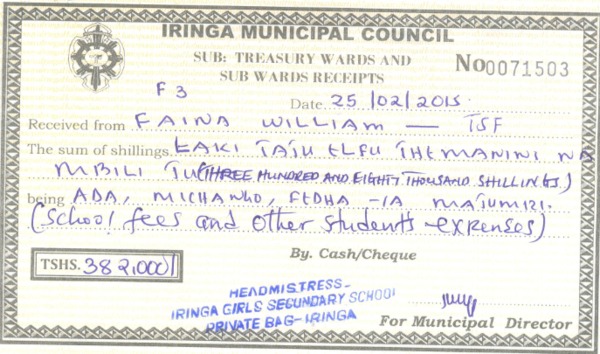 IRINGA MUNICIPAL COUNCIL
SUB: TREASURY WARDS AND
SUB WARDS RECEIPTS
No 0071503
F 3
Date 25/02/2015
Received from FAINA WILLIAM — TSF
The sum of shillings LAKI TATU ELFU THEMANINI NA
MBILI TU (THREE HUNDRED AND EIGHTY THOUSAND SHILLINGS)
being ADA, MICHANGO, FEDHA -IA MATUMIZI.
(School fees and other students expenses)
By. Cash/Cheque
TSHS. 382,000/
HEADMISTRESS-
IRINGA GIRLS SECUNDARY SCHOOL
PRIVATE BAG-IRINGA
For Municipal Director